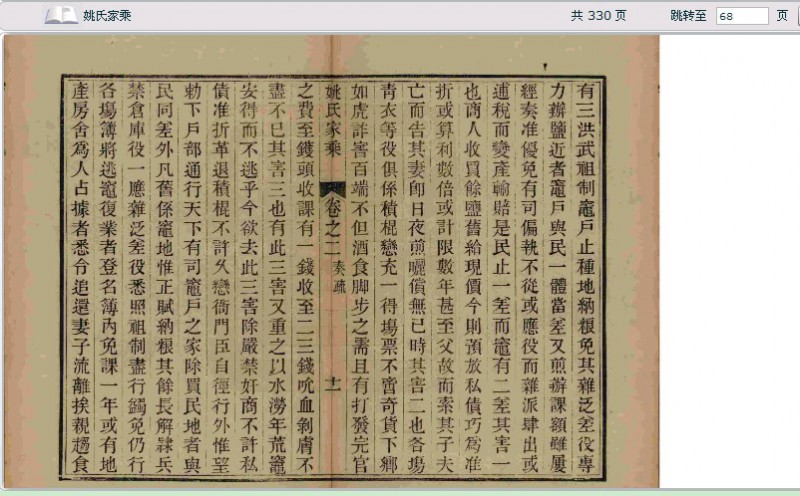 姚氏家乘
共 330 页
跳转至 68 页
有三洪武祖制竈戶止種地納粮免其雜泛差役專
力辦鹽近者竈戶與民一體當差又煎辦課額雖屢
經奏准優免有司偏執不從或應役而雜派肆出或
逋稅而變產輸賠是民止一差而竈有二差其害一
也商人收買餘鹽舊給現價今則預放私債巧為准
折或算利數倍或計限數年甚至父故而索其子夫
亡而告其妻卽日夜煎曬償無已時其害二也各塲
靑衣等役俱係積棍戀充一得塲票不啻奇貨下鄉
如虎詐害百端不但酒食脚步之需且有打發完官
姚氏家乘 卷之二 奏疏 十一
之費至鑊頭收課有一錢收至二三錢吮血剝膚不
盡不已其害三也有此三害又重之以水澇年荒竈
安得而不逃乎今欲去此三害除嚴禁奸商不許私
債准折革退積棍不許久戀衙門臣自徑行外惟望
勅下戶部通行天下有司竈戶之家除買民地者與
民同差外凡舊係竈地惟正賦納粮其餘長解隷兵
禁倉庫役一應雜泛差役悉照祖制盡行蠲免仍行
各塲簿將逃竈復業者登名簿內免課一年或有地
產房舍為人占據者悉令追還妻子流離挨親趨食